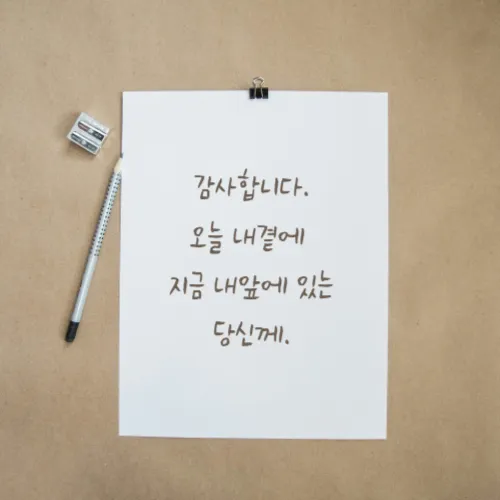 감사합니다.
오늘 내곁에
지금 내앞에 있는
당신께.